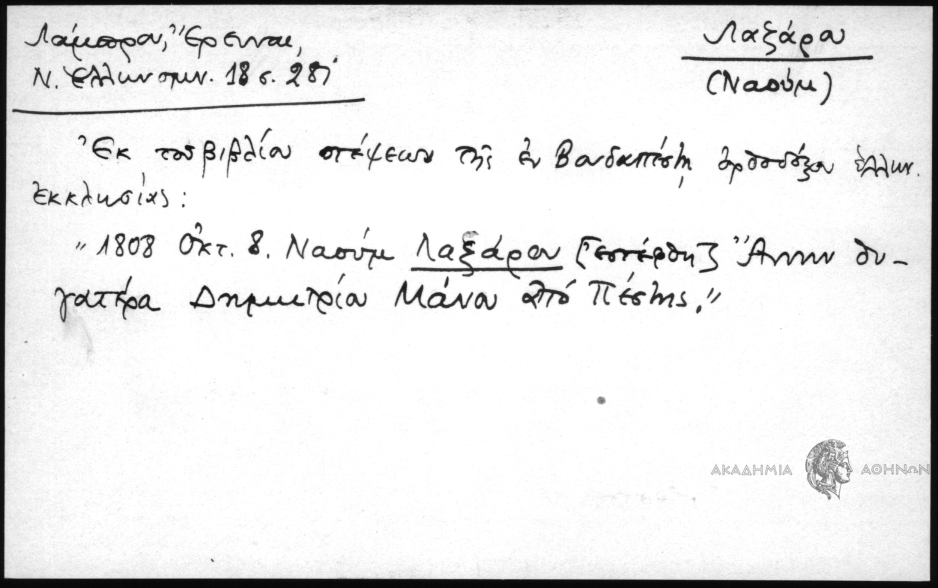 Λάμπρου, Ἔρευναι,
Ν. Ἑλληνομν. 18 σ. 287
Λαξάρου
(Ναούμ)
Ἐκ τοῦ βιβλίου στέψεων τῆς ἐν Βουδαπέστῃ ὀρθοδόξου ἑλλην.
ἐκκλησίας:
"1808 Ὀκτ. 8. Ναούμ Λαξάρου [ἐστέφθη] Ἄννην θυ-
γατέρα Δημητρίου Μάνου ἀπό Πέστης."
ΑΚΑΔΗΜΙΑ ΑΘΗΝΩΝ